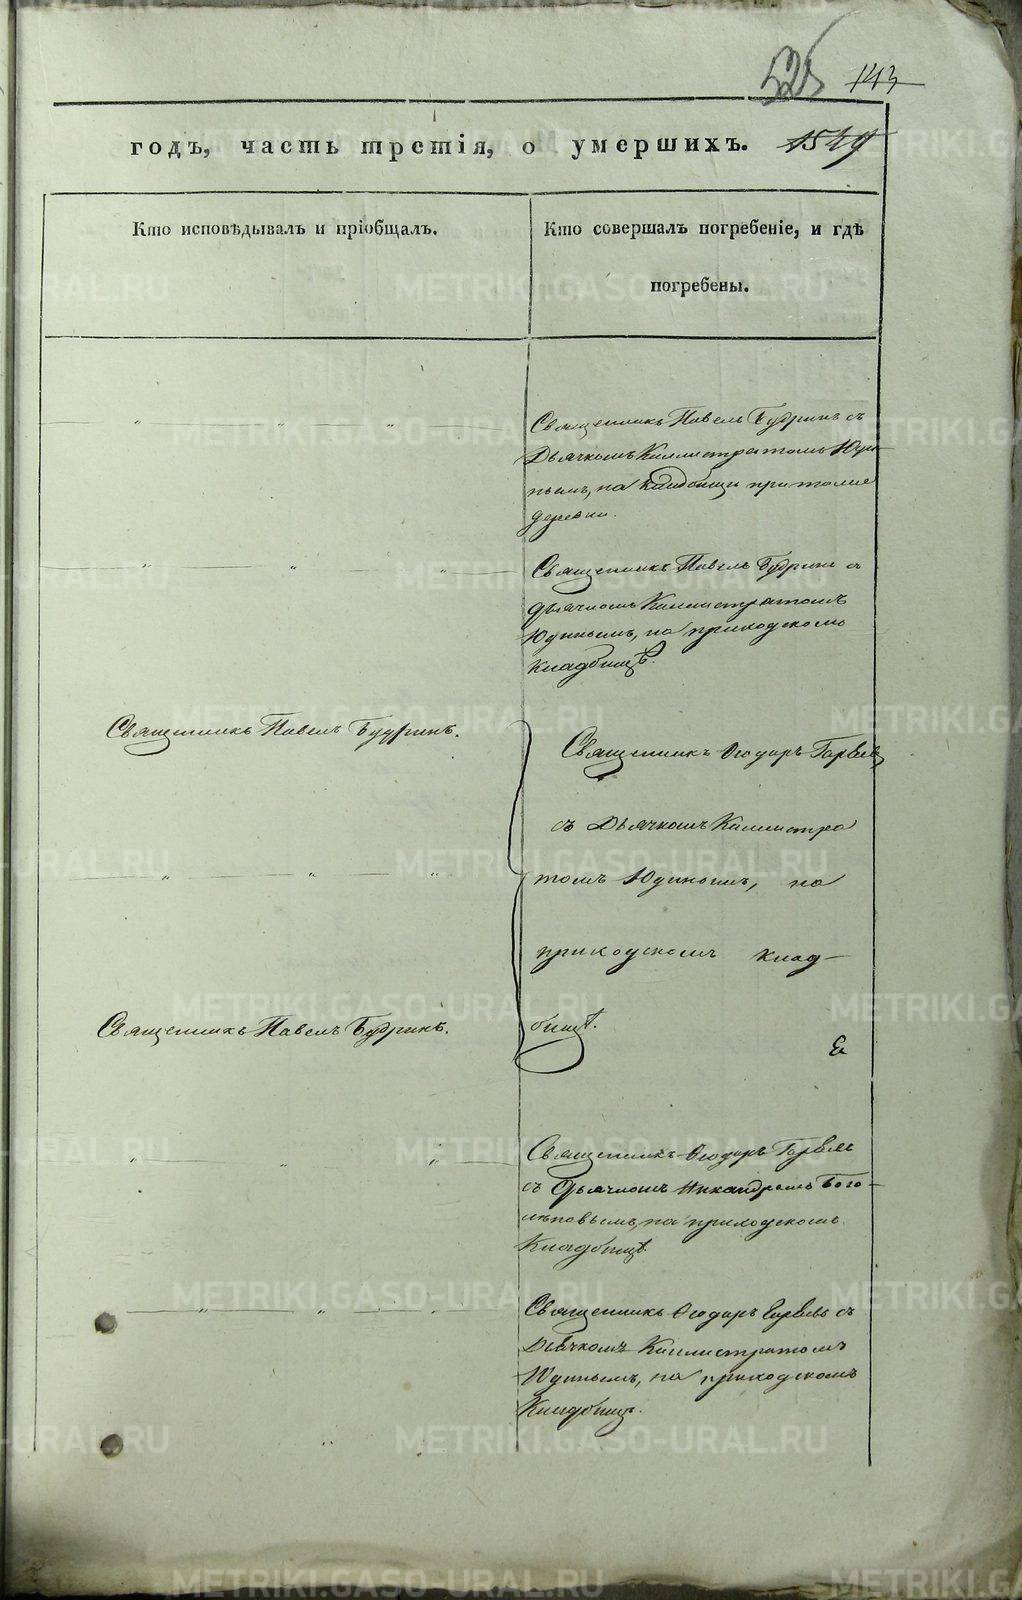 525 143
годъ, часть третія, о умершихъ. 1549
Кто исповѣдывалъ и пріобщалъ.
Кто совершалъ погребеніе, и гдѣ
погребены.
Священникъ Павелъ Будринъ съ
Дьячкомъ Каллистратомъ Юди-
нымъ, на кладбищѣ при той же
деревни.
Священникъ Павелъ Будринъ съ
дьячкомъ Каллистратомъ
Юдинымъ, на приходскомъ
кладбищѣ.
Священникъ Павелъ Будринъ.
Священникъ Ѳеодоръ
съ Дьячкомъ Каллистра
томъ Юдиномъ, на
приходскомъ клад-
бищѣ.
Священникъ Павелъ Будринъ.
Священникъ Ѳеодоръ
съ дьячкомъ Никандромъ Бого-
лѣповымъ, на приходскомъ
Кладбищѣ
Священникъ Ѳеодоръ съ
Дьячкомъ Каллистратомъ
Юдинымъ, на приходскомъ
Кладбищѣ.
METRIKI.GASO-URAL.RU